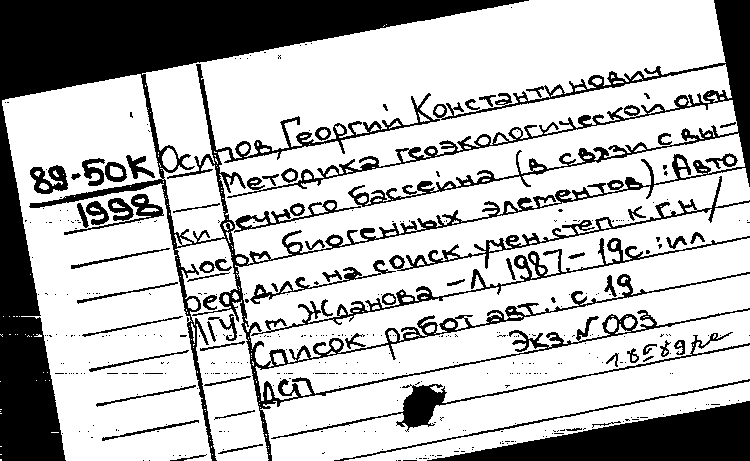 89-50К
1998
Осипов, Георгий Константинович
Методика геоэкологической оцен
ки речного бассейна (в связи с вы-
носом биогенных элементов) : Авто
реф. дис. на соиск. учен. степ. к.г.н /
ЛГУ им. Жданова. - Л., 1987. - 19с. : ил.
Список работ авт.: с. 19.
Экз. N 003
ДСП.